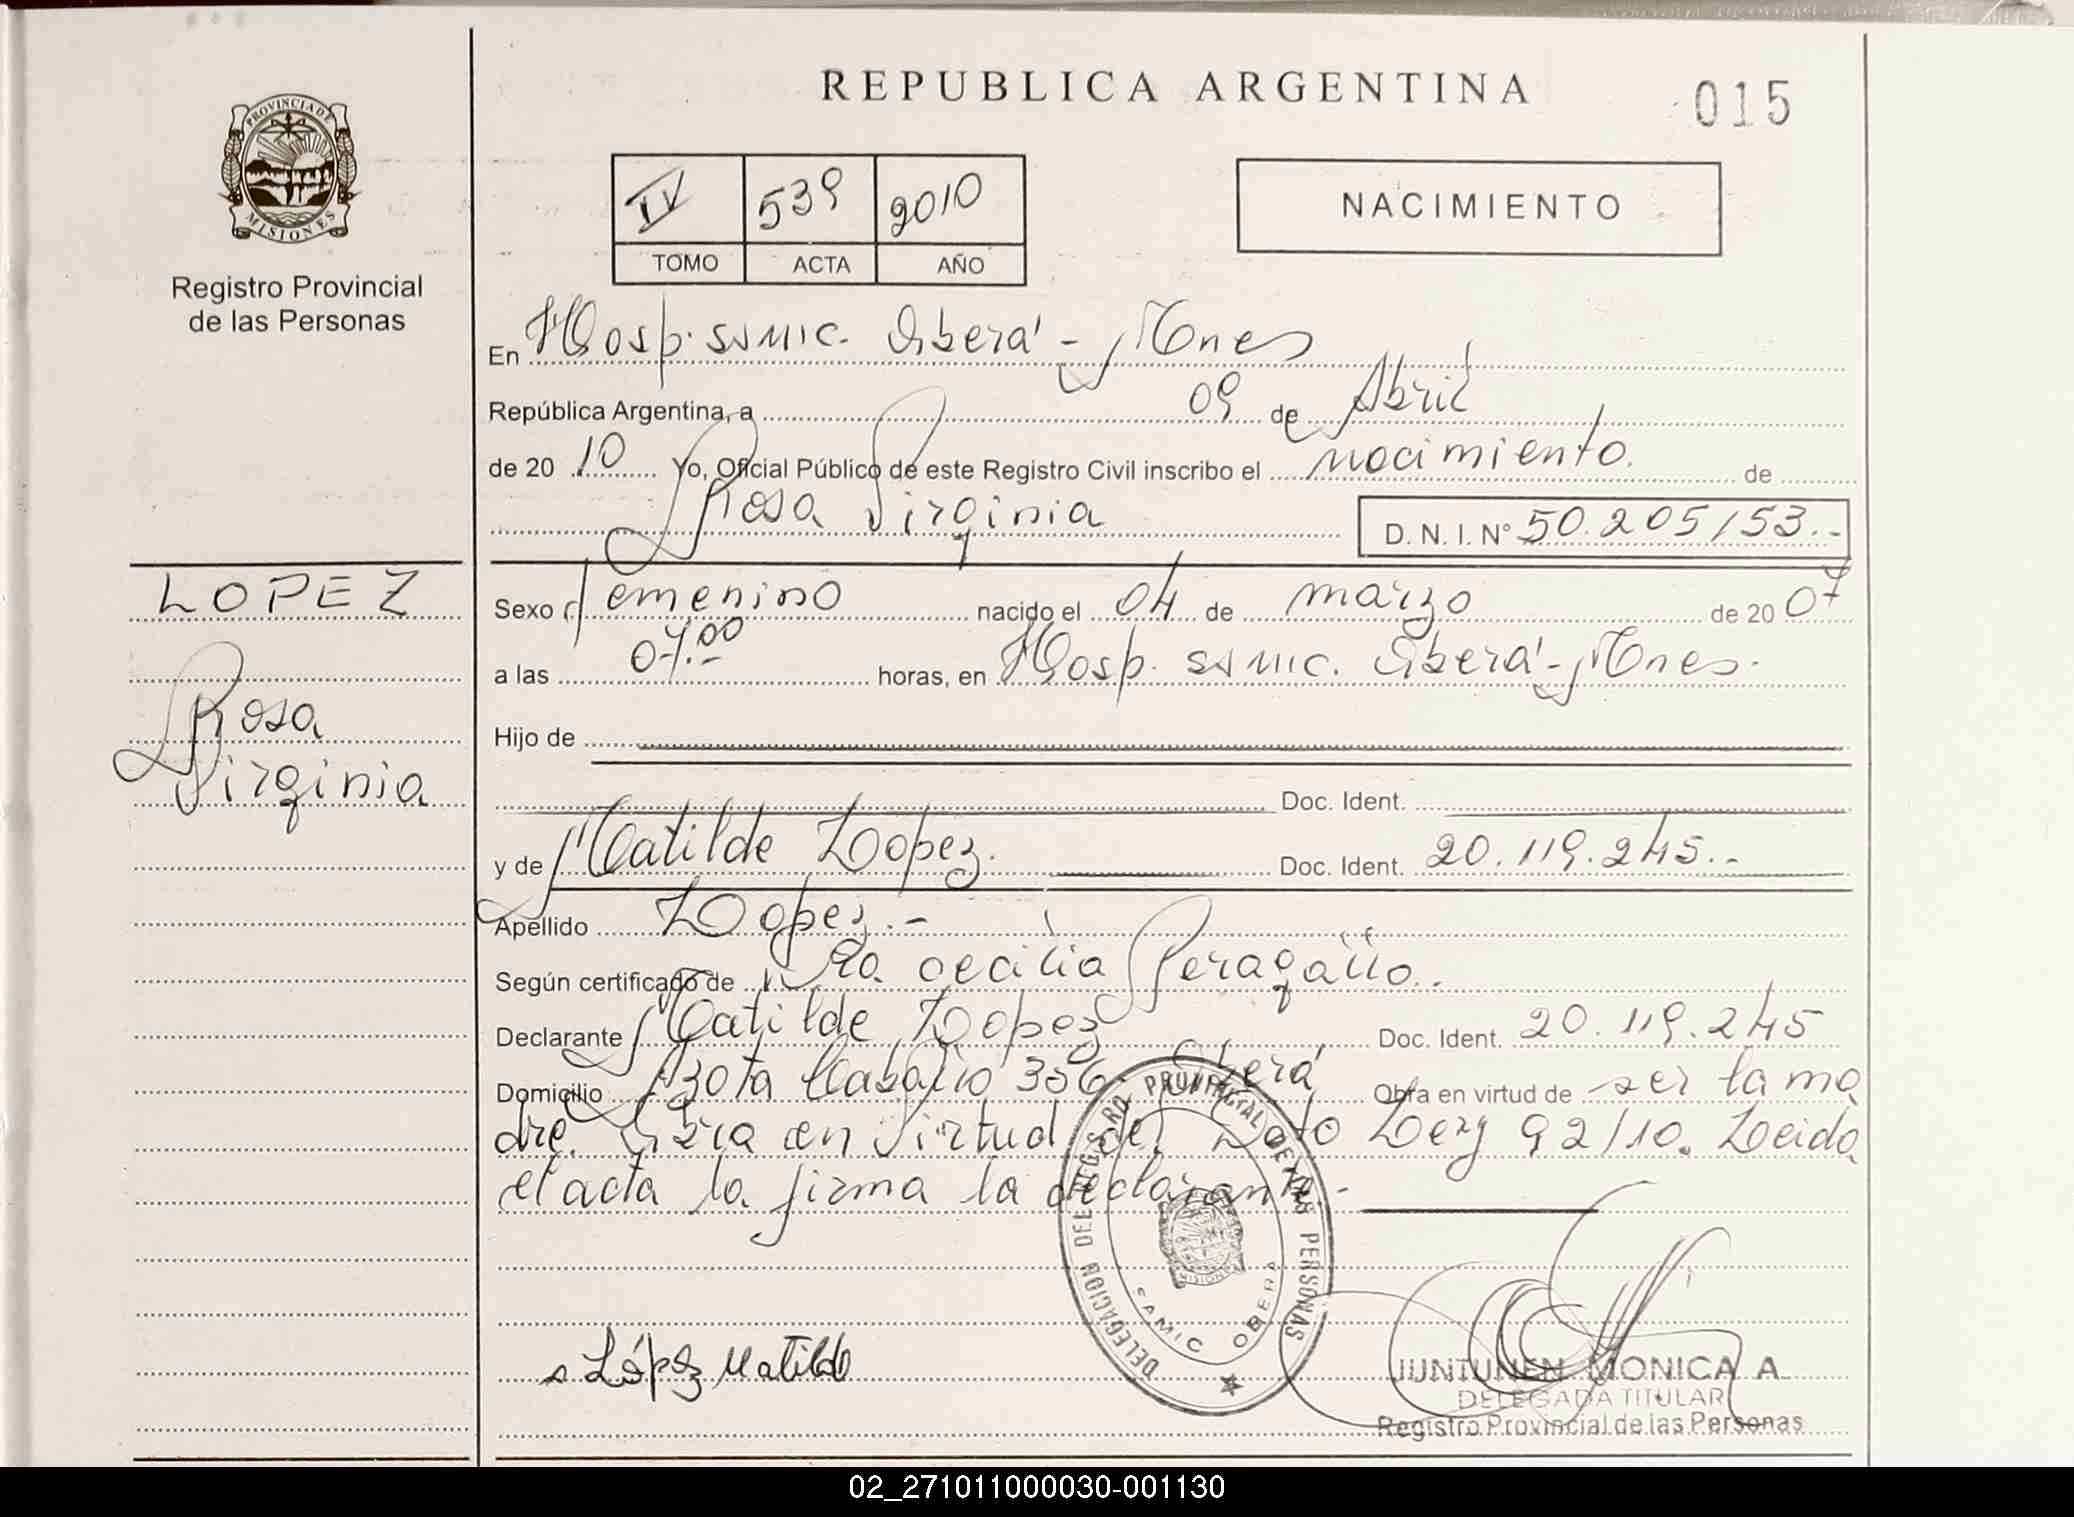 REPUBLICA ARGENTINA
015
PROVINCIA DE MISIONES
Registro Provincial
de las Personas
IV 539 2010
TOMO ACTA AÑO
NACIMIENTO
En Hosp. SAMIC. Oberá - Mnes
República Argentina, a 09 de Abril
de 20 10 Yo, Oficial Público de este Registro Civil inscribo el nacimiento. de
Rosa Virginia
D. N. I. N° 50.205153.-
LOPEZ
Rosa
Virginia
Sexo femenino nacido el 04 de marzo de 20 07
a las 07.00 horas, en Hosp. SAMIC. Oberá - Mnes.
Hijo de
Doc. Ident.
y de Matilde Lopez. Doc. Ident. 20.119.245.-
Apellido Lopez.-
Según certificado de Dra. Cecilia Peragallo.
Declarante Matilde Lopez Doc. Ident. 20.119.245
Domicilio 356 Oberá Obra en virtud de ser la ma
dre. Obra en virtud del Dcto 92/10. Leida
el acta la firma la declarante.-
DELEGACION DEL REGISTRO PROVINCIAL DE LAS PERSONAS
SAMIC OBERA
MISIONES
López Matilde
JUNTUNEN MONICA A.
DELEGADA TITULAR
Registro Provincial de las Personas
02_271011000030-001130